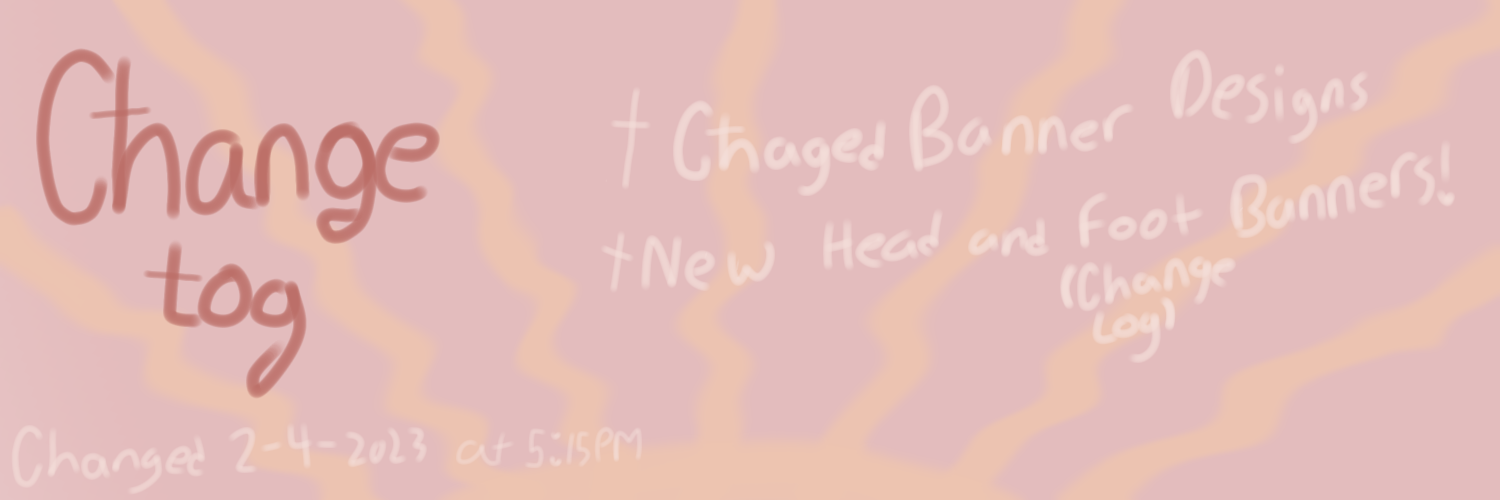 Change
tog
† Chaged Banner Designs
† New Head and Foot Banners!
(Change
Log)
Changed 2-4-2023 at 5:15PM